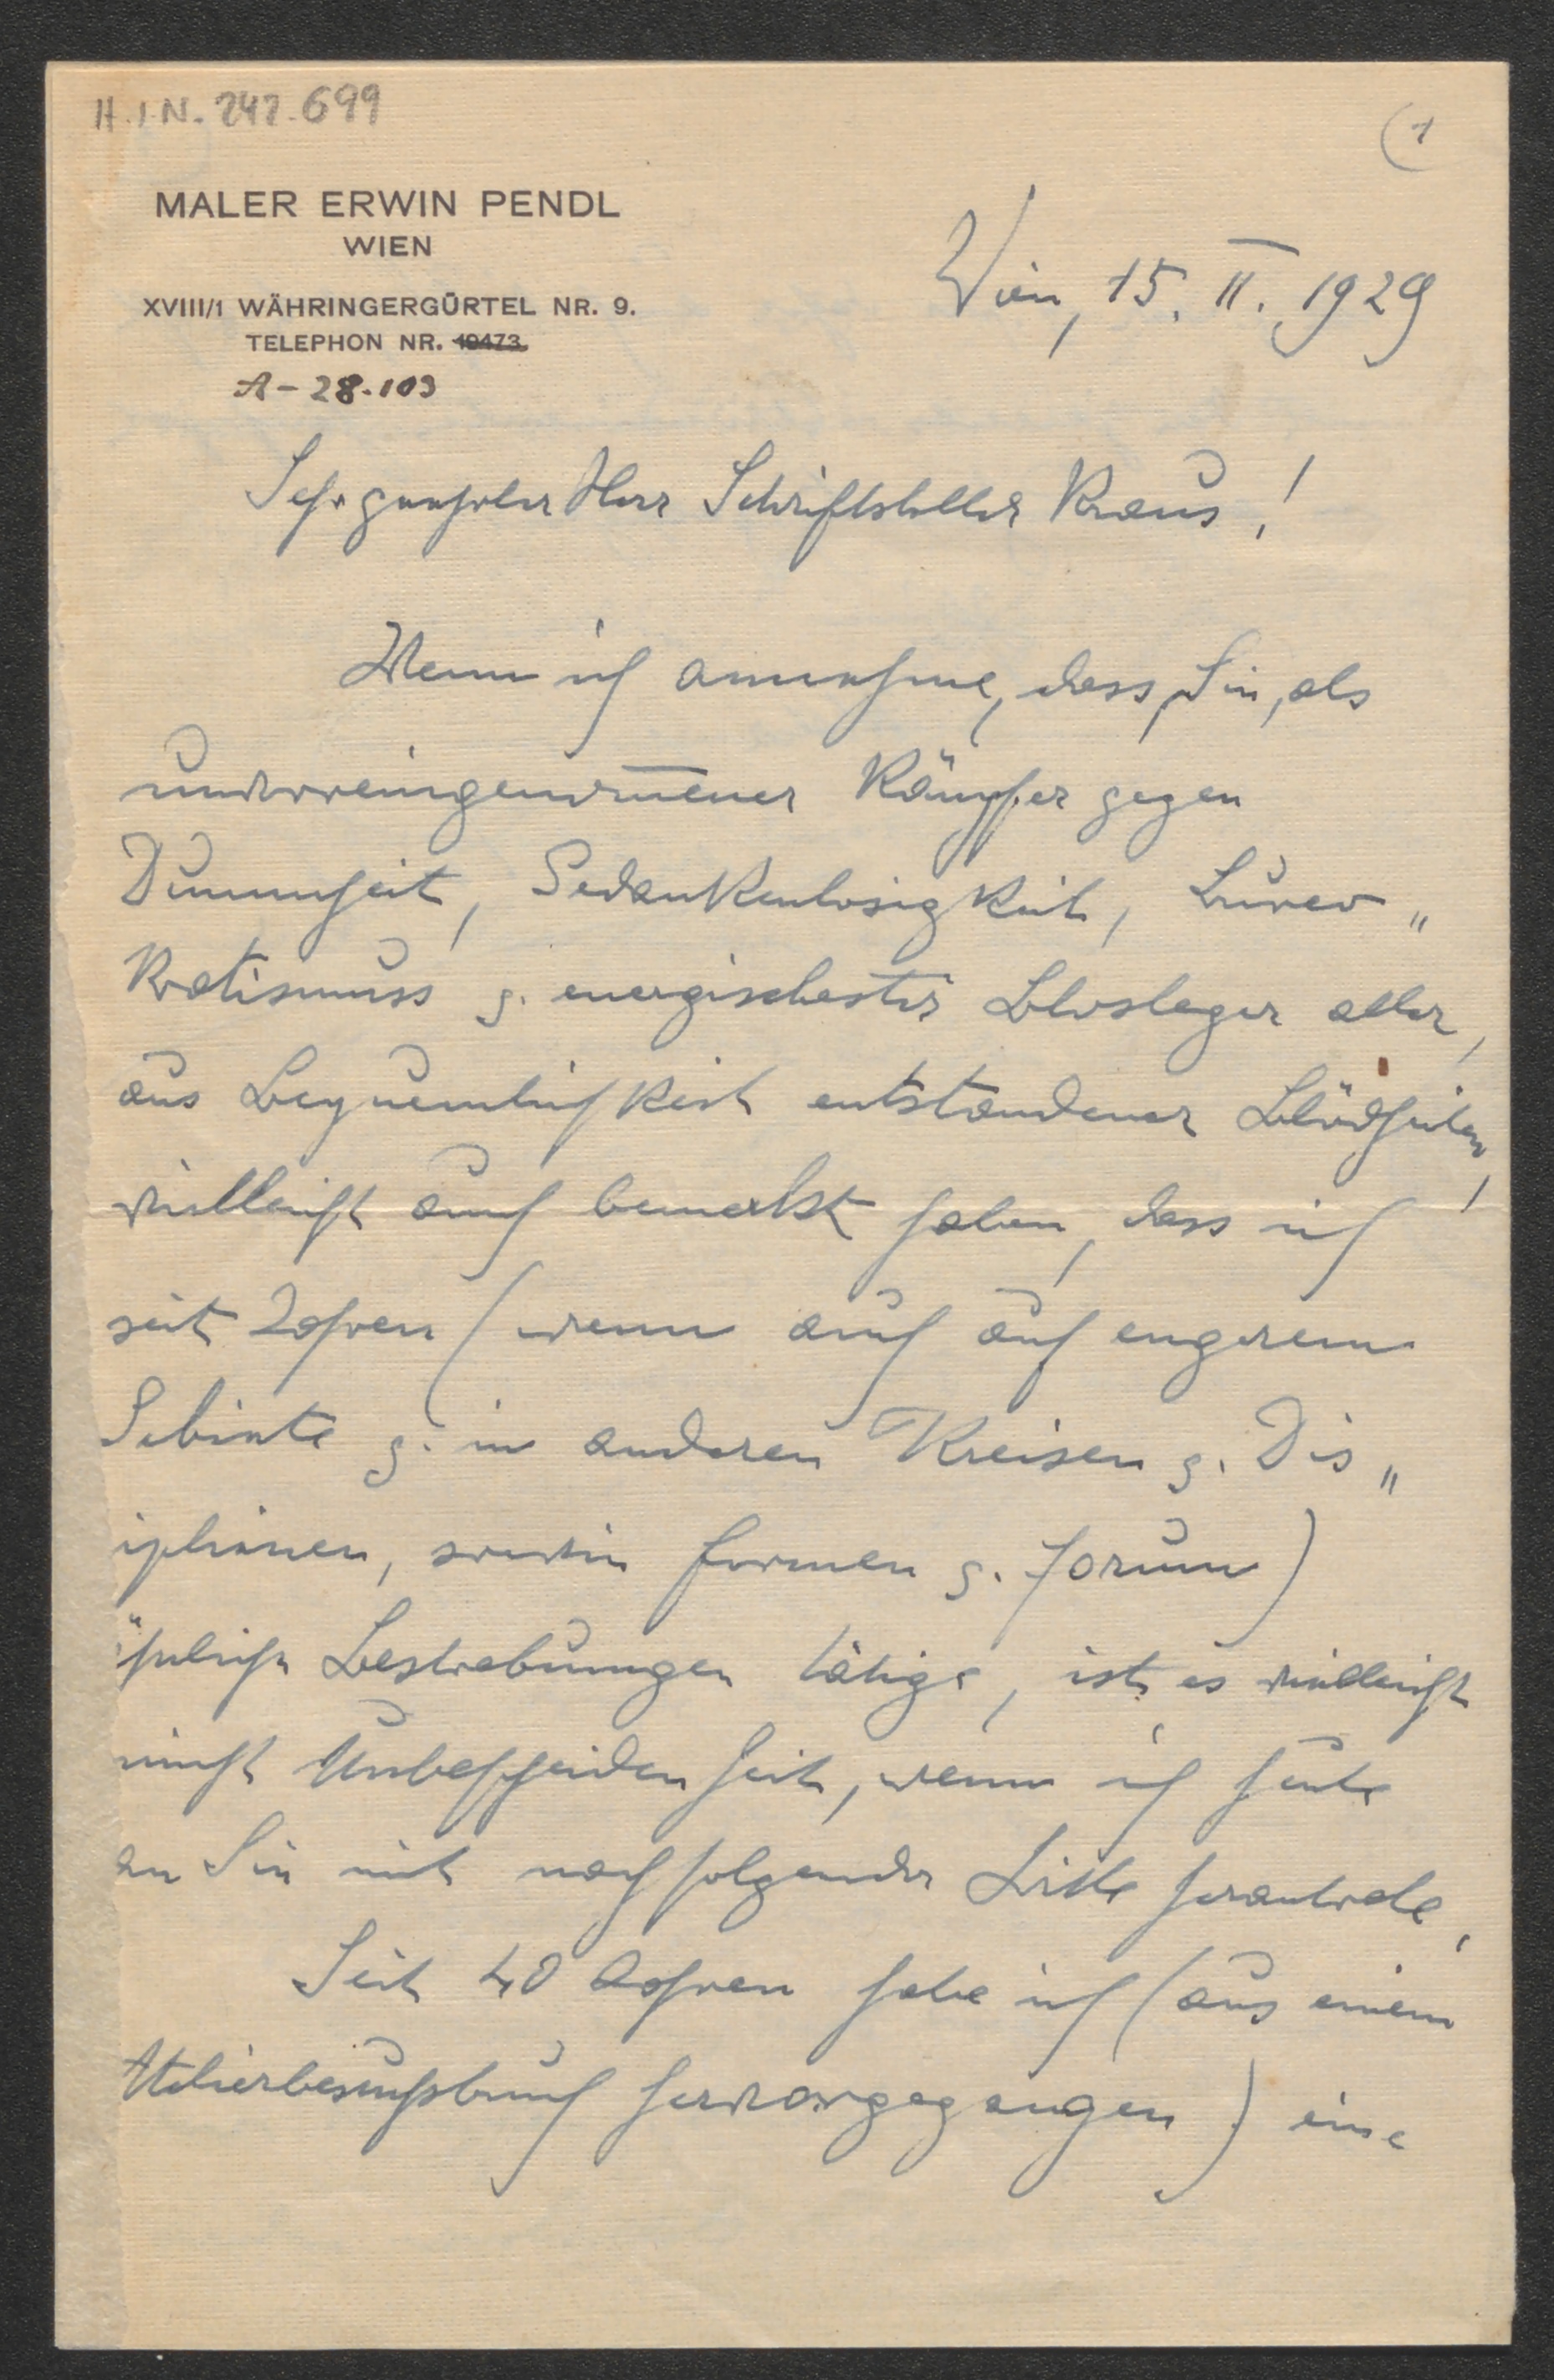 H.I.N. 242.699
(1
MALER ERWIN PENDL
WIEN
XVIII/1 WÄHRINGERGÜRTEL NR. 9.
TELEPHON NR. 19473.
A-28.103
Wien, 15. II. 1929
Sehr geehrter Herr Schriftsteller Kraus!
Wenn ich annehme, dass Sie, als
unvoreingenom̅ener Kämpfer gegen
Dummheit, Gedankenlosigkeit, Bureo„
kratismuss u. energischester Blosleger aller,
aus Bequemlichkeit entstandener Blödheiten,
vielleicht auch bemerkt haben, dass ich
seit Jahren (wenn auch auf engerem
Gebiete u. in anderen Kreisen u. Dis„
iplinen, sowie Formen u. Forum)
ähnliche Bestrebungen tätige, ist es vielleicht
nicht Unbescheidenheit, wenn ich heute
an Sie mit nachfolgender Bitte herantrete.
Seit 40 Jahren habe ich (aus einem
Atelierbesuchsbuch hervorgegangen) eine